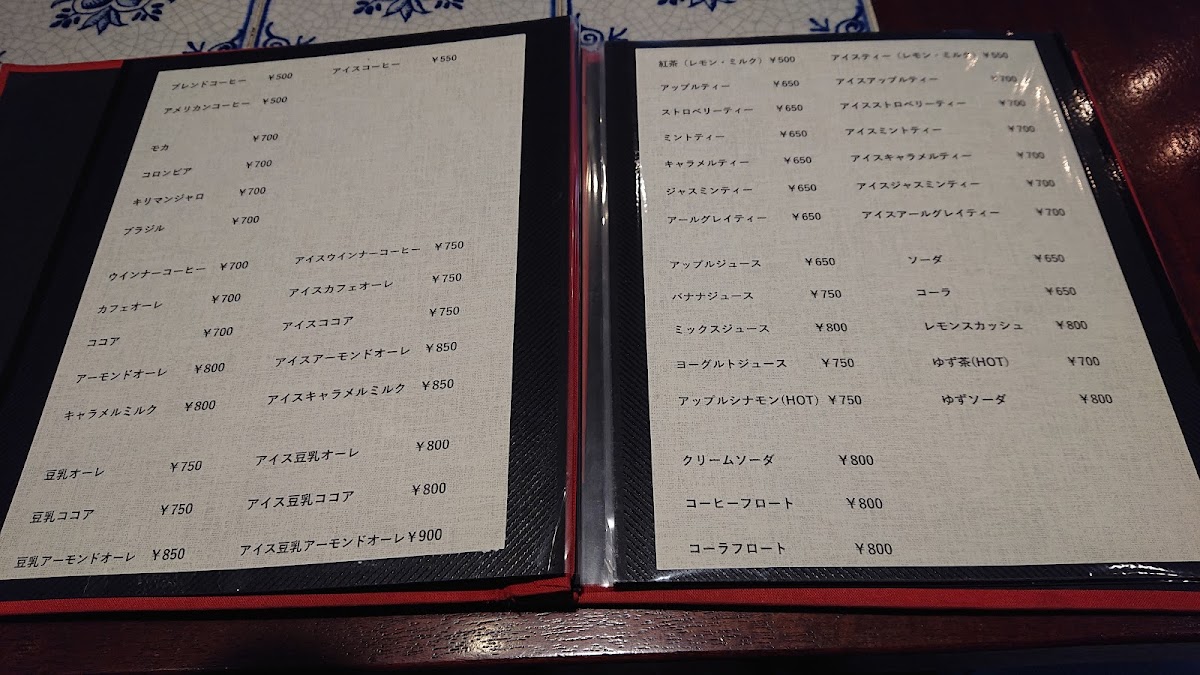 ブレンドコーヒー ¥500 アイスコーヒー ¥550
アメリカンコーヒー ¥500
モカ ¥700
コロンビア ¥700
キリマンジャロ ¥700
ブラジル ¥700
ウインナーコーヒー ¥700 アイスウインナーコーヒー ¥750
カフェオーレ ¥700 アイスカフェオーレ ¥750
ココア ¥700 アイスココア ¥750
アーモンドオーレ ¥800 アイスアーモンドオーレ ¥850
キャラメルミルク ¥800 アイスキャラメルミルク ¥850
豆乳オーレ ¥750 アイス豆乳オーレ ¥800
豆乳ココア ¥750 アイス豆乳ココア ¥800
豆乳アーモンドオーレ ¥850 アイス豆乳アーモンドオーレ¥900
紅茶(レモン・ミルク)¥500 アイスティー(レモン・ミルク)¥550
アップルティー ¥650 アイスアップルティー ¥700
ストロベリーティー ¥650 アイスストロベリーティー ¥700
ミントティー ¥650 アイスミントティー ¥700
キャラメルティー ¥650 アイスキャラメルティー ¥700
ジャスミンティー ¥650 アイスジャスミンティー ¥700
アールグレイティー ¥650 アイスアールグレイティー ¥700
アップルジュース ¥650 ソーダ ¥650
バナナジュース ¥750 コーラ ¥650
ミックスジュース ¥800 レモンスカッシュ ¥800
ヨーグルトジュース ¥750 ゆず茶(HOT) ¥700
アップルシナモン(HOT) ¥750 ゆずソーダ ¥800
クリームソーダ ¥800
コーヒーフロート ¥800
コーラフロート ¥800